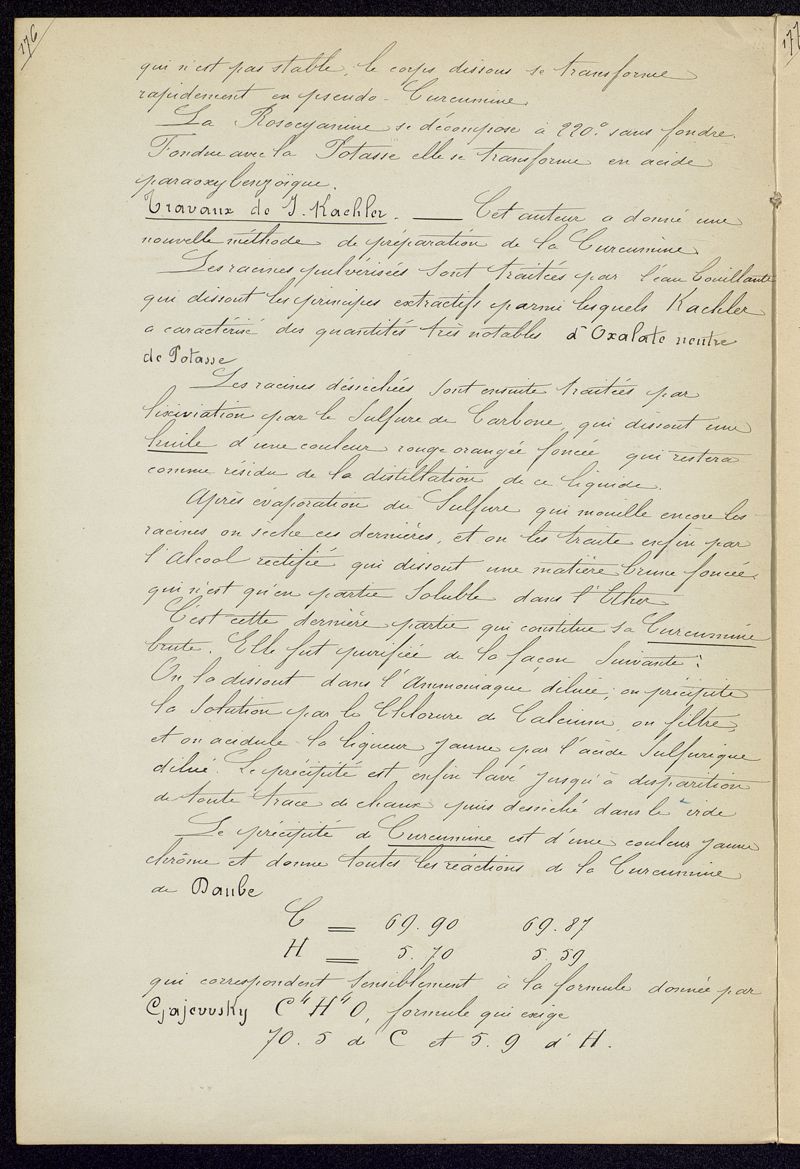 176
177
qui n'est pas stable; le corps dissous se transforme
rapidement en pseudo-Curcumine.
La Rosocyanine se décompose à 220° sans fondre.
Fondue avec la Potasse elle se transforme en acide
paraoxybenzoïque.
Travaux de J. Kachler. — Cet auteur a donné une
nouvelle méthode de préparation de la Curcumine.
Les racines pulvérisées sont traitées par l'eau bouillante
qui dissout les principes extractifs parmi lesquels Kachler
a caractérisé des quantités très notables d'Oxalate neutre
de Potasse
Les racines désséchées sont ensuite traitées par
lixiviation par le Sulfure de Carbone, qui dissout une
huile d'une couleur rouge orangée foncée qui restera
comme résidu de la distillation de ce liquide.
Après évaporation du Sulfure qui mouille encore les
racines on sèche ces dernières, et on les traite enfin par
l'Alcool rectifié qui dissout une matière brune foncée
qui n'est qu'en partie soluble dans l'Ether
C'est cette dernière partie qui constitue sa Curcumine
brute. Elle fut purifiée de la façon suivante:
On la dissout dans l'Ammoniaque diluée; on précipite
la solution par le Chlorure de Calcium, on filtre,
et on acidule la liqueur jaune par l'acide Sulfurique
dilué. Le précipité est enfin lavé jusqu'à disparition
de toute trace de chaux puis desséché dans le vide
Le précipité de Curcumine est d'une couleur jaune
chrôme et donne toutes les réactions de la Curcumine
de Daube
C = 69.90 69.87
H = 5.70 5.59
qui correspondent sensiblement à la formule donnée par
Gajevvsky C⁴H⁴O, formule qui exige
70.5 de C et 5.9 d'H.